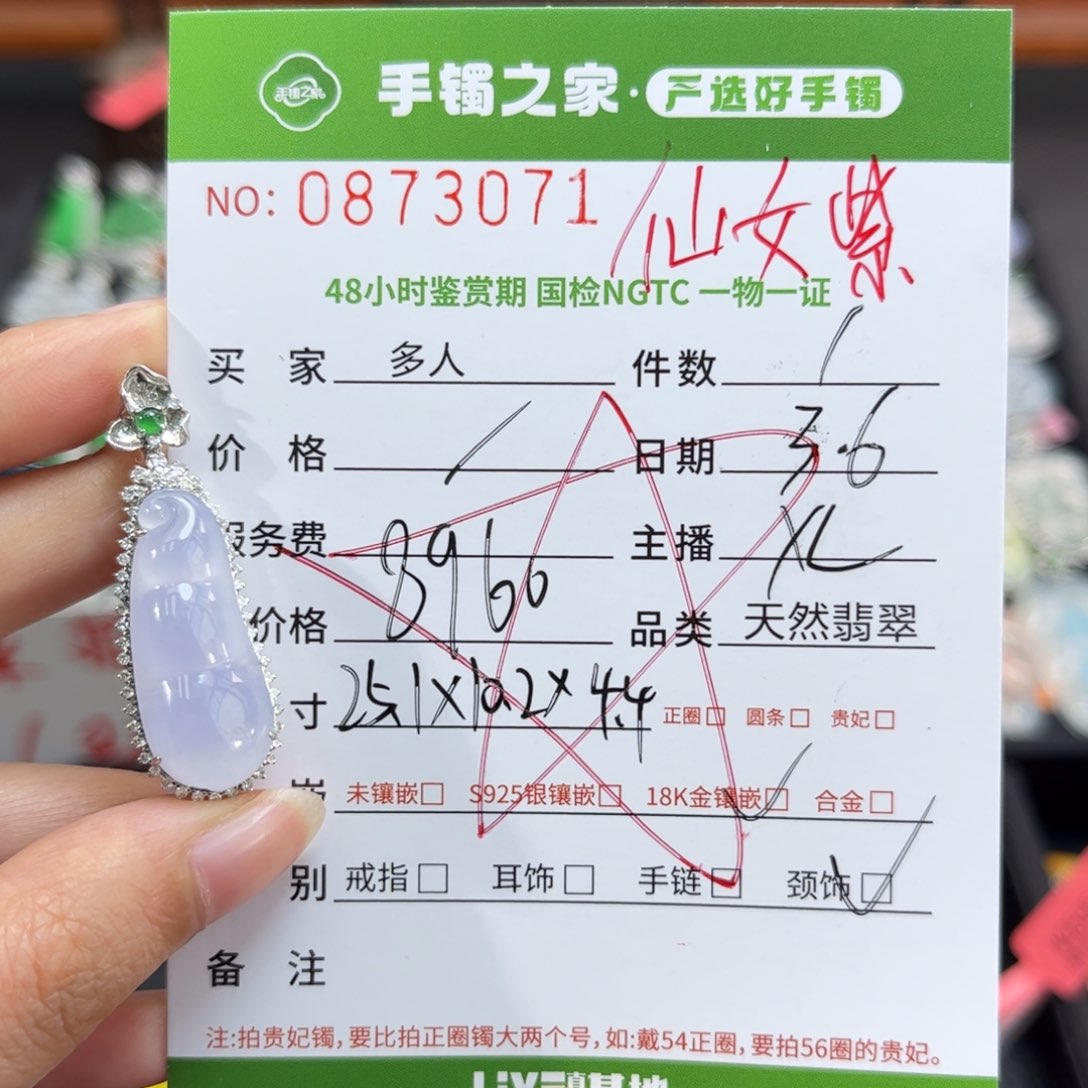 手镯之家
手镯之家·严选好手镯
NO: 0873071 仙女紫
48小时鉴赏期 国检NGTC 一物一证
买 家 多人 件数 1
价 格 / 日期 3.6
服务费 3960 主播 XL
价格 品类 天然翡翠
寸 25.1×10.2×4.4 正圈□ 圆条□ 贵妃□
嵌 未镶嵌□ S925银镶嵌□ 18K金镶嵌□ ✓ 合金□
别 戒指□ 耳饰□ 手链□ 颈饰□ ✓
备 注
注:拍贵妃镯,要比拍正圈镯大两个号,如:戴54正圈,要拍56圈的贵妃。